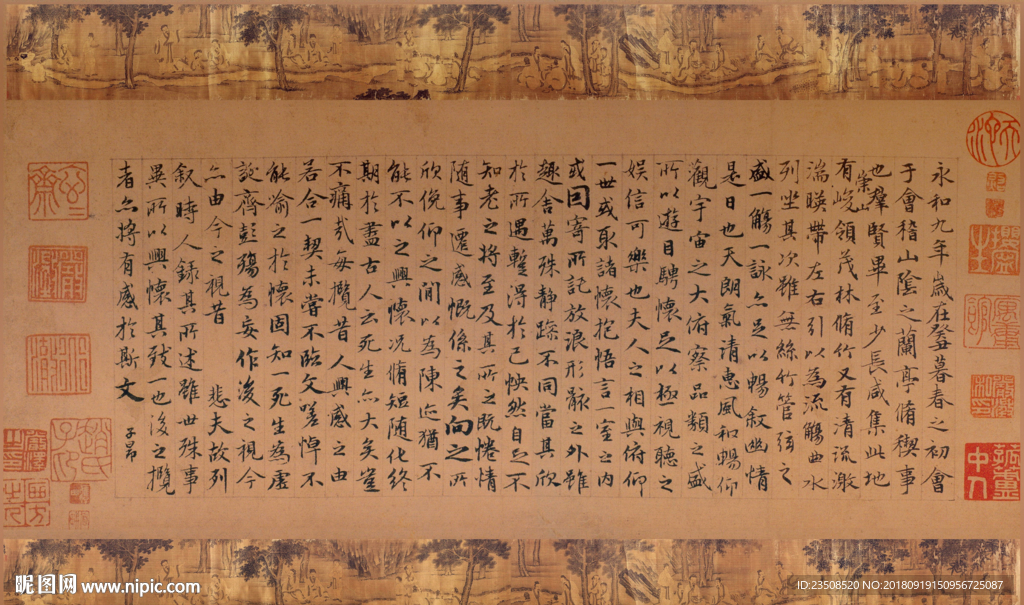 永和九年歲在癸丑暮春之初會
于會稽山陰之蘭亭脩禊事
也羣賢畢至少長咸集此地
有崇山峻領茂林脩竹又有清流激
湍暎帶左右引以為流觴曲水
列坐其次雖無絲竹管弦之
盛一觴一詠亦足以暢叙幽情
是日也天朗氣清惠風和暢仰
觀宇宙之大俯察品類之盛
所以遊目騁懷足以極視聽之
娛信可樂也夫人之相與俯仰
一世或取諸懷抱悟言一室之内
或因寄所託放浪形骸之外雖
趣舍萬殊静躁不同當其欣
於所遇蹔得於己怏然自足不
知老之將至及其所之既惓情
随事遷感慨係之矣向之所
欣俛仰之閒以為陳迹猶不
能不以之興懷況脩短随化終
期於盡古人云死生亦大矣豈
不痛哉每攬昔人興感之由
若合一契未嘗不臨文嗟悼不
能喻之於懷固知一死生為虛
誕齊彭殤為妄作後之視今
亦由今之視昔 悲夫故列
叙時人錄其所述雖世殊事
異所以興懷其致一也後之攬
者亦將有感於斯文
子昂
昵图网 www.nipic.com
ID:23508520 NO:20180919150956725087